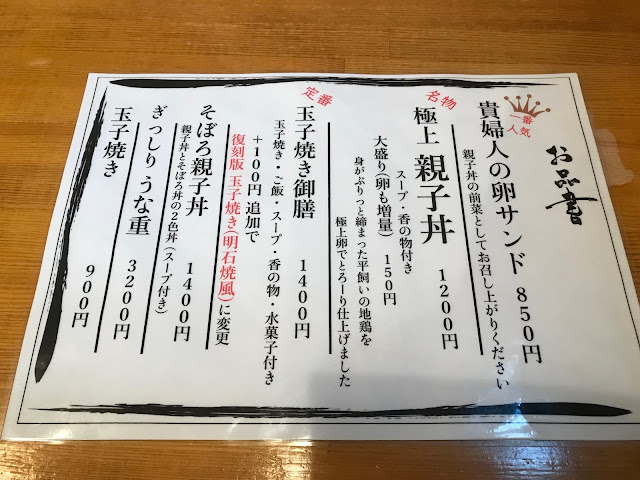 お品書
一番人気
貴婦人の卵サンド 850円
親子丼の前菜としてお召し上がりください
名物
極上 親子丼 1200円
スープ・香の物付き
大盛り(卵も増量) 150円
身がぷりっと締まった平飼いの地鶏を
極上卵でとろーり仕上げました
定番
玉子焼き御膳 1400円
玉子焼き・ご飯・スープ・香の物・水菓子付き
+100円 追加で
復刻版 玉子焼き(明石焼風)に変更
そぼろ親子丼 1400円
親子丼とそぼろ丼の2色丼(スープ付き)
ぎっしり うな重 3200円
玉子焼き 900円